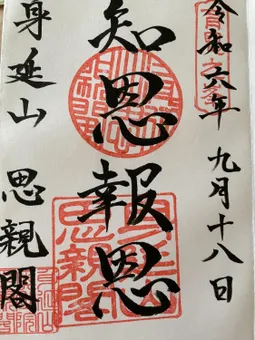 令和六年 九月十八日
知恩報恩
身延山 思親閣